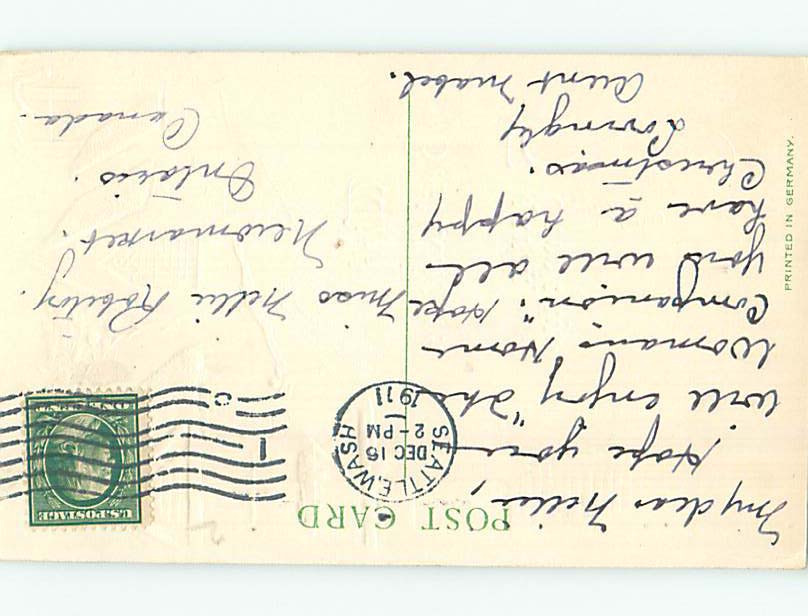 POST CARD
My dear Nellie!
Hope you
will enjoy "The
Woman's Home
Companion". Hope
you will all
have a happy
Christmas.
Lovingly
Aunt Mabel.
SEATTLE, WASH.
DEC 16
2 - PM
1911
U.S. POSTAGE
Miss Nellie
Newmarket.
Ontario.
Canada.
PRINTED IN GERMANY.